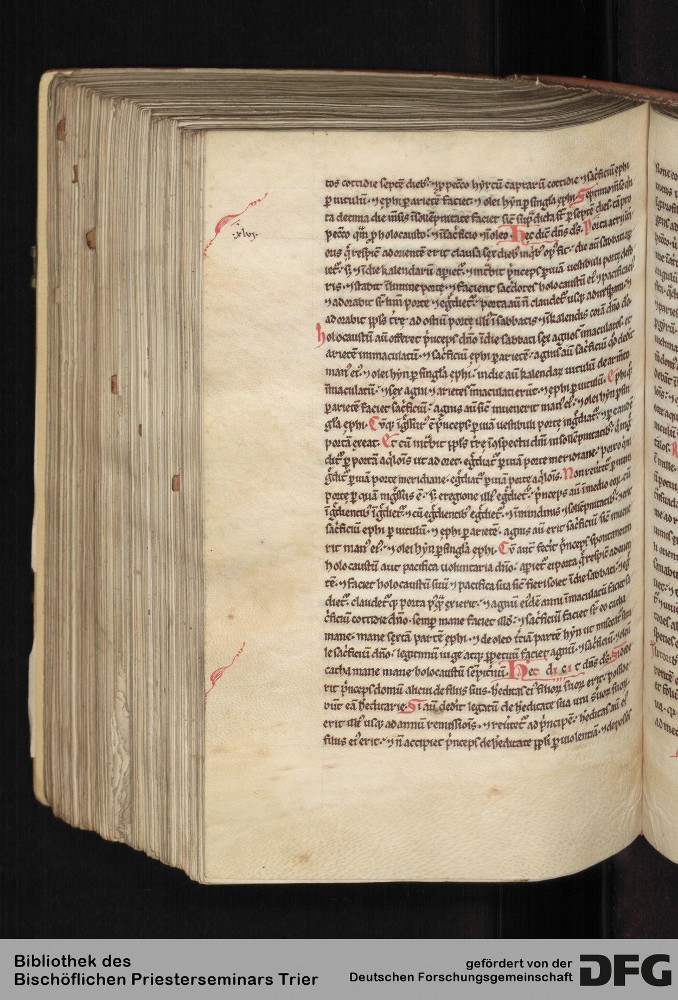 tos cottidie septē dieb; ⁊ p pecco hyrcū caprarū cottidie ⁊ sac̄ficiū ephi
p uitulū ⁊ ephi p arietē faciet ⁊ olei hyn p singla ephi Septimo m̄se q̄n
ta decima die m̄sis ī sollēpnitate faciet sic̄ sup̄ dicta sūt p septē dies tā pro
pecco q̄m p holocausto ⁊ ī sac̄ficio ⁊ ī oleo. Hec dic̄ dn̄s ds̄. Porta atrii int̄i
.xlvj.
oris q̄ respic̄ ad orientē erit clausa sex dieb; ī q̄b; op̄ fit. die aū sabbati ap̄
iet᷑. sꝫ ⁊ ī die kalendarū ap̄iet᷑. ⁊ int̄bit p̄nceps p uiā uestibuli porte defo
ris ⁊ stabit ī limine porte ⁊ facient sac̄dotes holocaustū ei᷒ ⁊ pacifica ei᷒
⁊ adorabit sr̄ lim̄ porte ⁊ eḡdiet᷑. porta aū n̄ claudet᷑ usq; ad uesp̄am. ⁊
adorabit ppl̄s t̄re ad ostiū porte illi᷒ ī sabbatis ⁊ ī kalendis corā dn̄o.
holocaustū aū offeret p̄nceps dn̄o ī die sabbati sex agnos īmaculatos. et
arietē immaculatū. ⁊ sac̄ficiū ephi p arietē. agnis aū sac̄ficiū q̄d dedit
man᷒ ei᷒. ⁊ olei hyn p singla ephi. in die aū kalendaꝝ uitulū de armto
īmaculatū. ⁊ sex agni ⁊ arietes īmaculati erūt. ⁊ ephi p uitulū. Ephi q;
p arietē faciet sac̄ficiū. agnis aū sic̄ inuenerit man᷒ ei᷒. ⁊ olei hyn p sin
gla ephi. Cūq; īḡssur᷒ ē p̄nceps p uiā uestibuli porte inḡdiat᷑. ⁊ p eandē
portā exeat. Et cū int̄bit ppl̄s t̄re ī ɔspectu dn̄i in sollēpnitatib; q̄ inḡ
dit᷑ p portā aq̄lonis ut adoret. eḡdiat᷑ p uiā porte meridiane. porro q̄ in
ḡdit᷑ p uiā porte meridiane. eḡdiat᷑ p uiā porte aq̄lonis. Non reuertet᷑ p uiā
porte p quā inḡssus ē. sꝫ e regione illi᷒ eḡdiet᷑. p̄nceps aū ī medio eoꝝ cū
īḡdientib; īḡdiet᷑. ⁊ cū eḡdientib; eḡdiet᷑. ⁊ ī nundinis ⁊ sollēpnitatib; erit
sac̄ficiū ephi p uitulū. ⁊ ephi p arietē. agnis aū erit sac̄ficiū sic̄ inuene
rit man᷒ ei᷒. ⁊ olei hyn p singla ephi. Cū autē fecit p̄nceps spontaneum
holocaustū aut pacifica uoluntaria dn̄o. ap̄iet᷑ ei porta q̄ respic̄ ad orien
tē. ⁊ faciet holocaustū suū ⁊ pacifica sua sic̄ fieri solet ī die sabbati. ⁊ eḡ
diet᷑. claudet᷑q; porta p᷒q̄ exierit. ⁊ agnū ei᷒dē anni īmaculatū faciet sa
c̄ficiū cottidie dn̄o. semp̄ mane faciet illd̄. ⁊ sac̄ficiū faciet sr̄ eo cata
mane mane sextā partē ephi. ⁊ de oleo t̄ciā partē hyn ut misceat᷑ simi
le sac̄ficiū dn̄o legitimū iuge atq; ppetuū faciet agnū. ⁊ sac̄ficiū. ⁊ oleū
catha mane mane. holocaustū sēpit̄nū. Hec dicit dn̄s ds̄. Si dede
rit p̄nceps domū alicui de filiis suis. hēditas ei᷒ filioꝝ suoꝝ erit. posside
būt eā hēditarie. Si aū dedit legatū de hēditate sua uni s̄uoꝝ suoꝝ.
erit illi᷒ usq; ad annū remissiōis. ⁊ reūtet᷑ ad p̄ncipē. hēditas aū ei᷒
filiis ei᷒ erit. ⁊ n̄ accipiet p̄nceps de hēditate ppl̄i p uiolentiā. ⁊ de possess
Bibliothek des
Bischöflichen Priesterseminars Trier
gefördert von der
Deutschen Forschungsgemeinschaft
DFG